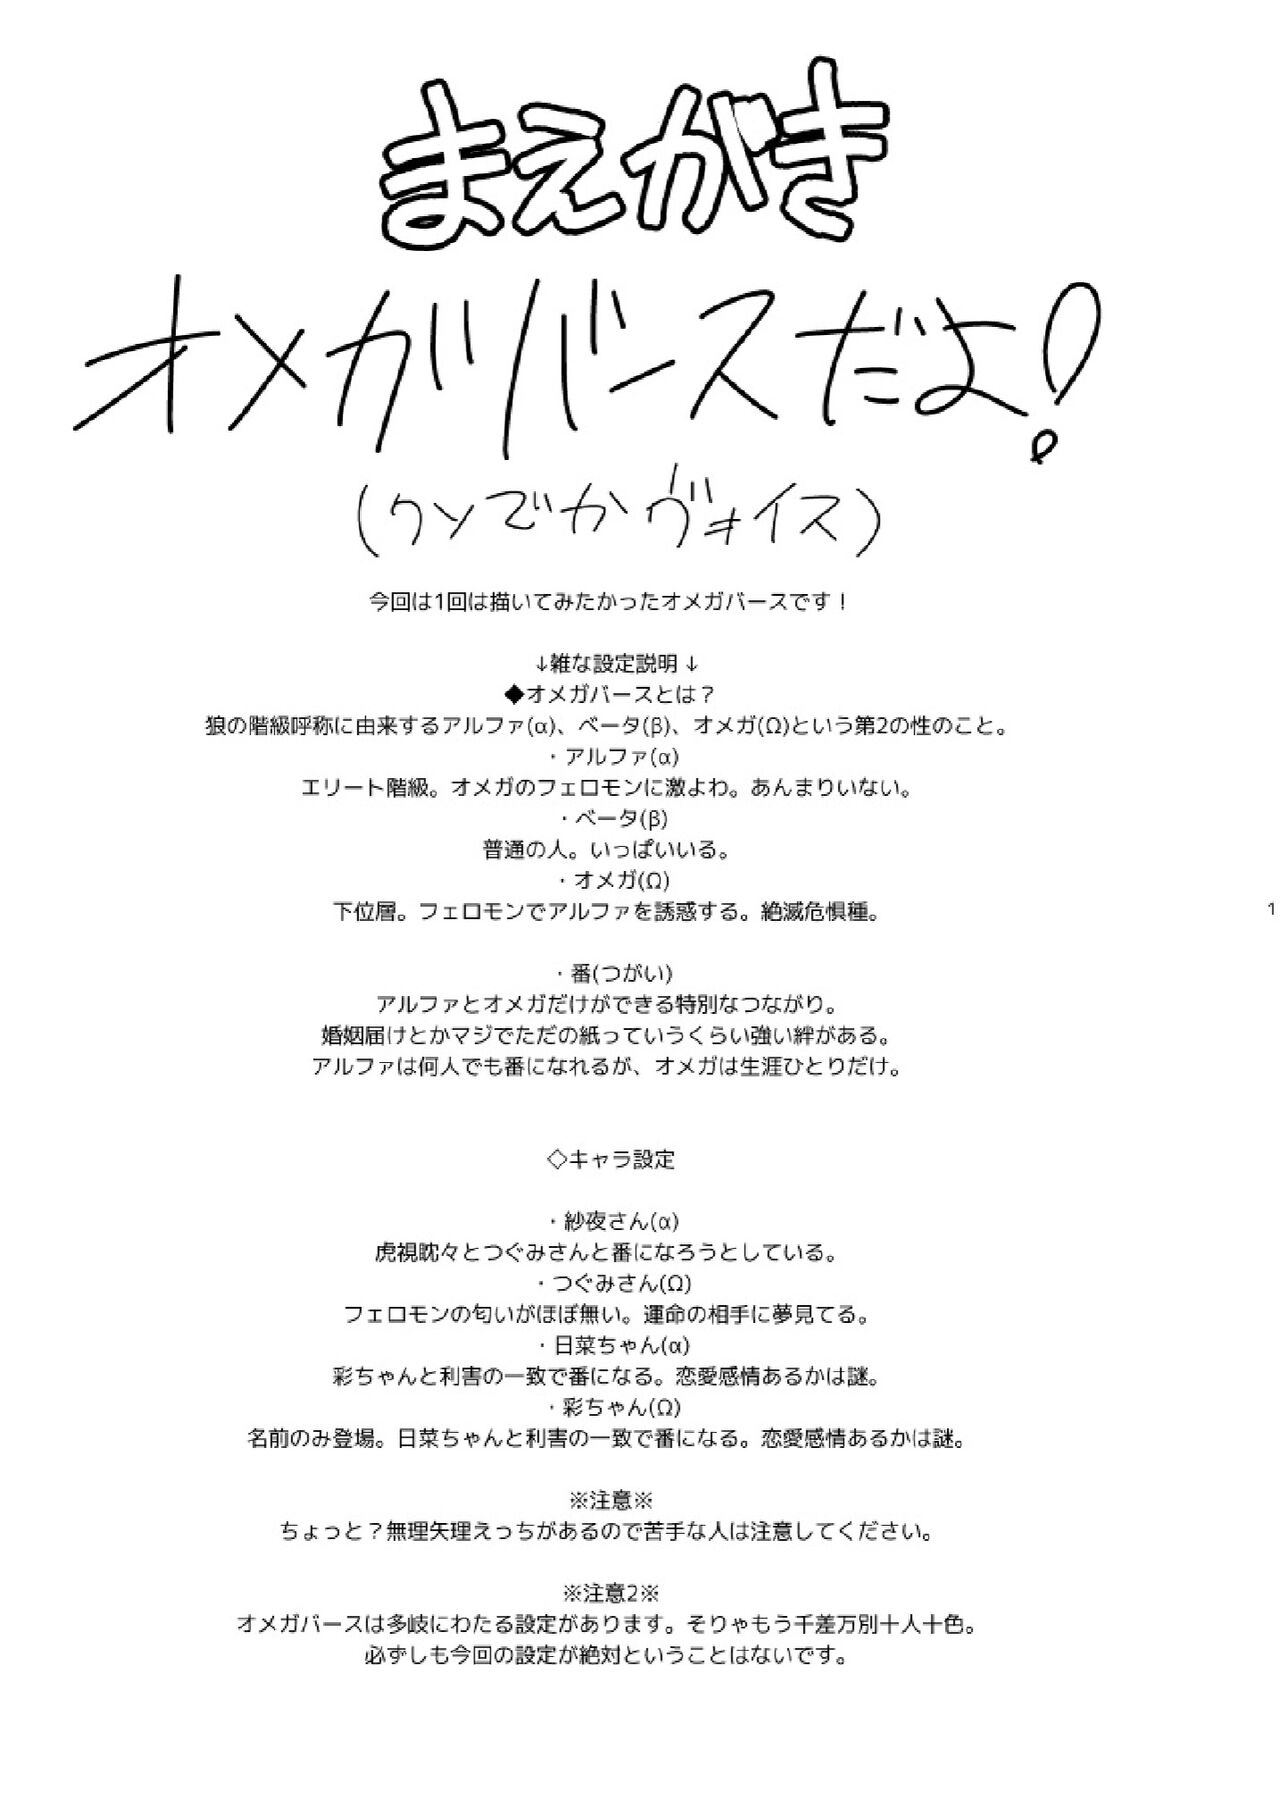 まえがき
オメガバースだよ!
(クソでかヴォイス)
今回は1回は描いてみたかったオメガバースです！
↓雑な設定説明↓
◆オメガバースとは？
狼の階級呼称に由来するアルファ(α)、ベータ(β)、オメガ(Ω)という第2の性のこと。
・アルファ(α)
エリート階級。オメガのフェロモンに激よわ。あんまりいない。
・ベータ(β)
普通の人。いっぱいいる。
・オメガ(Ω)
下位層。フェロモンでアルファを誘惑する。絶滅危惧種。
・番(つがい)
アルファとオメガだけができる特別なつながり。
婚姻届けとかマジでただの紙っていうくらい強い絆がある。
アルファは何人でも番になれるが、オメガは生涯ひとりだけ。
◇キャラ設定
・紗夜さん(α)
虎視眈々とつぐみさんと番になろうとしている。
・つぐみさん(Ω)
フェロモンの匂いがほぼ無い。運命の相手に夢見てる。
・日菜ちゃん(α)
彩ちゃんと利害の一致で番になる。恋愛感情あるかは謎。
・彩ちゃん(Ω)
名前のみ登場。日菜ちゃんと利害の一致で番になる。恋愛感情あるかは謎。
※注意※
ちょっと？無理矢理えっちがあるので苦手な人は注意してください。
※注意2※
オメガバースは多岐にわたる設定があります。そりゃもう千差万別十人十色。
必ずしも今回の設定が絶対ということはないです。
1